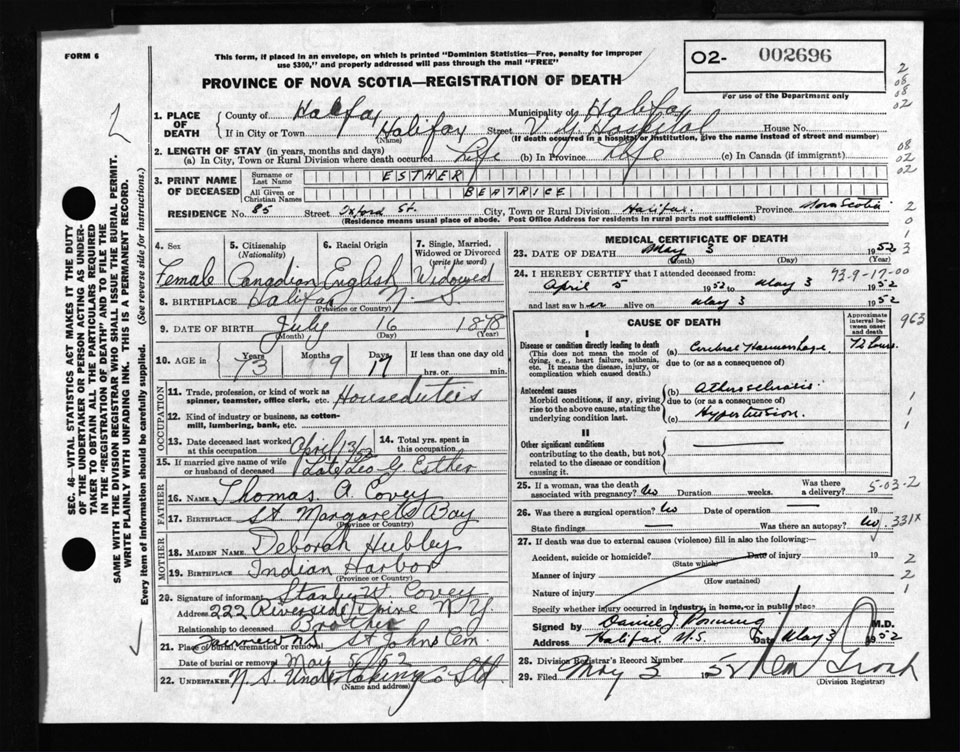 FORM 6
This form, if placed in an envelope, on which is printed "Dominion Statistics—Free, penalty for improper
use $300," and properly addressed will pass through the mail "FREE"
PROVINCE OF NOVA SCOTIA—REGISTRATION OF DEATH
02- 002696
For use of the Department only
2
08
08
02
SEC. 46—VITAL STATISTICS ACT MAKES IT THE DUTY
OF THE UNDERTAKER OR PERSON ACTING AS UNDER-
TAKER TO OBTAIN ALL THE PARTICULARS REQUIRED
IN THE "REGISTRATION OF DEATH" AND TO FILE THE
SAME WITH THE DIVISION REGISTRAR WHO SHALL ISSUE THE BURIAL PERMIT.
WRITE PLAINLY WITH UNFADING INK. THIS IS A PERMANENT RECORD.
Every item of information should be carefully supplied. (See reverse side for instructions.)
1. PLACE OF DEATH
County of Halifax Municipality of Halifax
If in City or Town Halifax Street V. G. Hospital House No.
(Name) (If death occurred in a hospital or institution, give the name instead of street and number)
2. LENGTH OF STAY (in years, months and days)
(a) In City, Town or Rural Division where death occurred Life (b) In Province Life (c) In Canada (if immigrant)
08
02
02
3. PRINT NAME OF DECEASED
Surname or Last Name ESTHER
All Given or Christian Names BEATRICE
RESIDENCE No. 85 Street Oxford St. City, Town or Rural Division Halifax. Province Nova Scotia
(Residence means usual place of abode. Post Office Address for residents in rural parts not sufficient)
2
0
1
3
4. Sex Female
5. Citizenship (Nationality) Canadian
6. Racial Origin English
7. Single, Married, Widowed or Divorced (write the word) Widowed
8. BIRTHPLACE Halifax N. S.
(Province or Country)
9. DATE OF BIRTH July 16 1878
(Month) (Day) (Year)
10. AGE in Years 73 Months 9 Days 17 If less than one day old
hrs. or min.
OCCUPATION
11. Trade, profession, or kind of work as
spinner, teamster, office clerk, etc. Houseduties
12. Kind of industry or business, as cotton-
mill, lumbering, bank, etc.
13. Date deceased last worked at this occupation April 13/52 14. Total yrs. spent in this occupation
15. If married give name of wife or husband of deceased Late Leo G. Esther
FATHER
16. NAME Thomas A. Covey
17. BIRTHPLACE St. Margarets Bay
(Province or Country)
MOTHER
18. MAIDEN NAME Deborah Hubley
19. BIRTHPLACE Indian Harbor
(Province or Country)
20. Signature of informant Stanley W. Covey
Address 222 Riverside Drive N.Y.
Relationship to deceased Brother
21. Place of burial, cremation or removal St. Johns Cem.
Date of burial or removal May 5/52
22. UNDERTAKER N. S. Undertaking Co Ltd.
(Name and address)
MEDICAL CERTIFICATE OF DEATH
23. DATE OF DEATH May 3 1952
(Month) (Day) (Year)
24. I HEREBY CERTIFY that I attended deceased from: 73-9-17-00
April 5 1952 to May 3 1952
and last saw her alive on May 3 1952
CAUSE OF DEATH
Approximate interval between onset and death
963
I
Disease or condition directly leading to death (a) Cerebral Haemorrhage 72 hours
(This does not mean the mode of dying, e.g., heart failure, asthenia, etc. It means the disease, injury, or complication which caused death.)
due to (or as a consequence of)
Antecedent causes (b) Atherosclerosis
Morbid conditions, if any, giving rise to the above cause, stating the underlying condition last.
due to (or as a consequence of)
(c) Hypertension.
1
1
1
II
Other significant conditions
contributing to the death, but not related to the disease or condition causing it.
25. If a woman, was the death associated with pregnancy? No Duration weeks. Was there a delivery?
5-03-2
26. Was there a surgical operation? No Date of operation — 19
State findings — Was there an autopsy? No.
331X
27. If death was due to external causes (violence) fill in also the following:—
Accident, suicide or homicide? Date of injury 19
(State which)
Manner of injury
(How sustained)
Nature of injury
Specify whether injury occurred in industry, in home, or in public place
2
2
1
Signed by Daniel J. M.D.
Address Halifax N.S. Date May 3 1952
28. Division Registrar's Record Number
29. Filed May 3 1952
(Division Registrar)